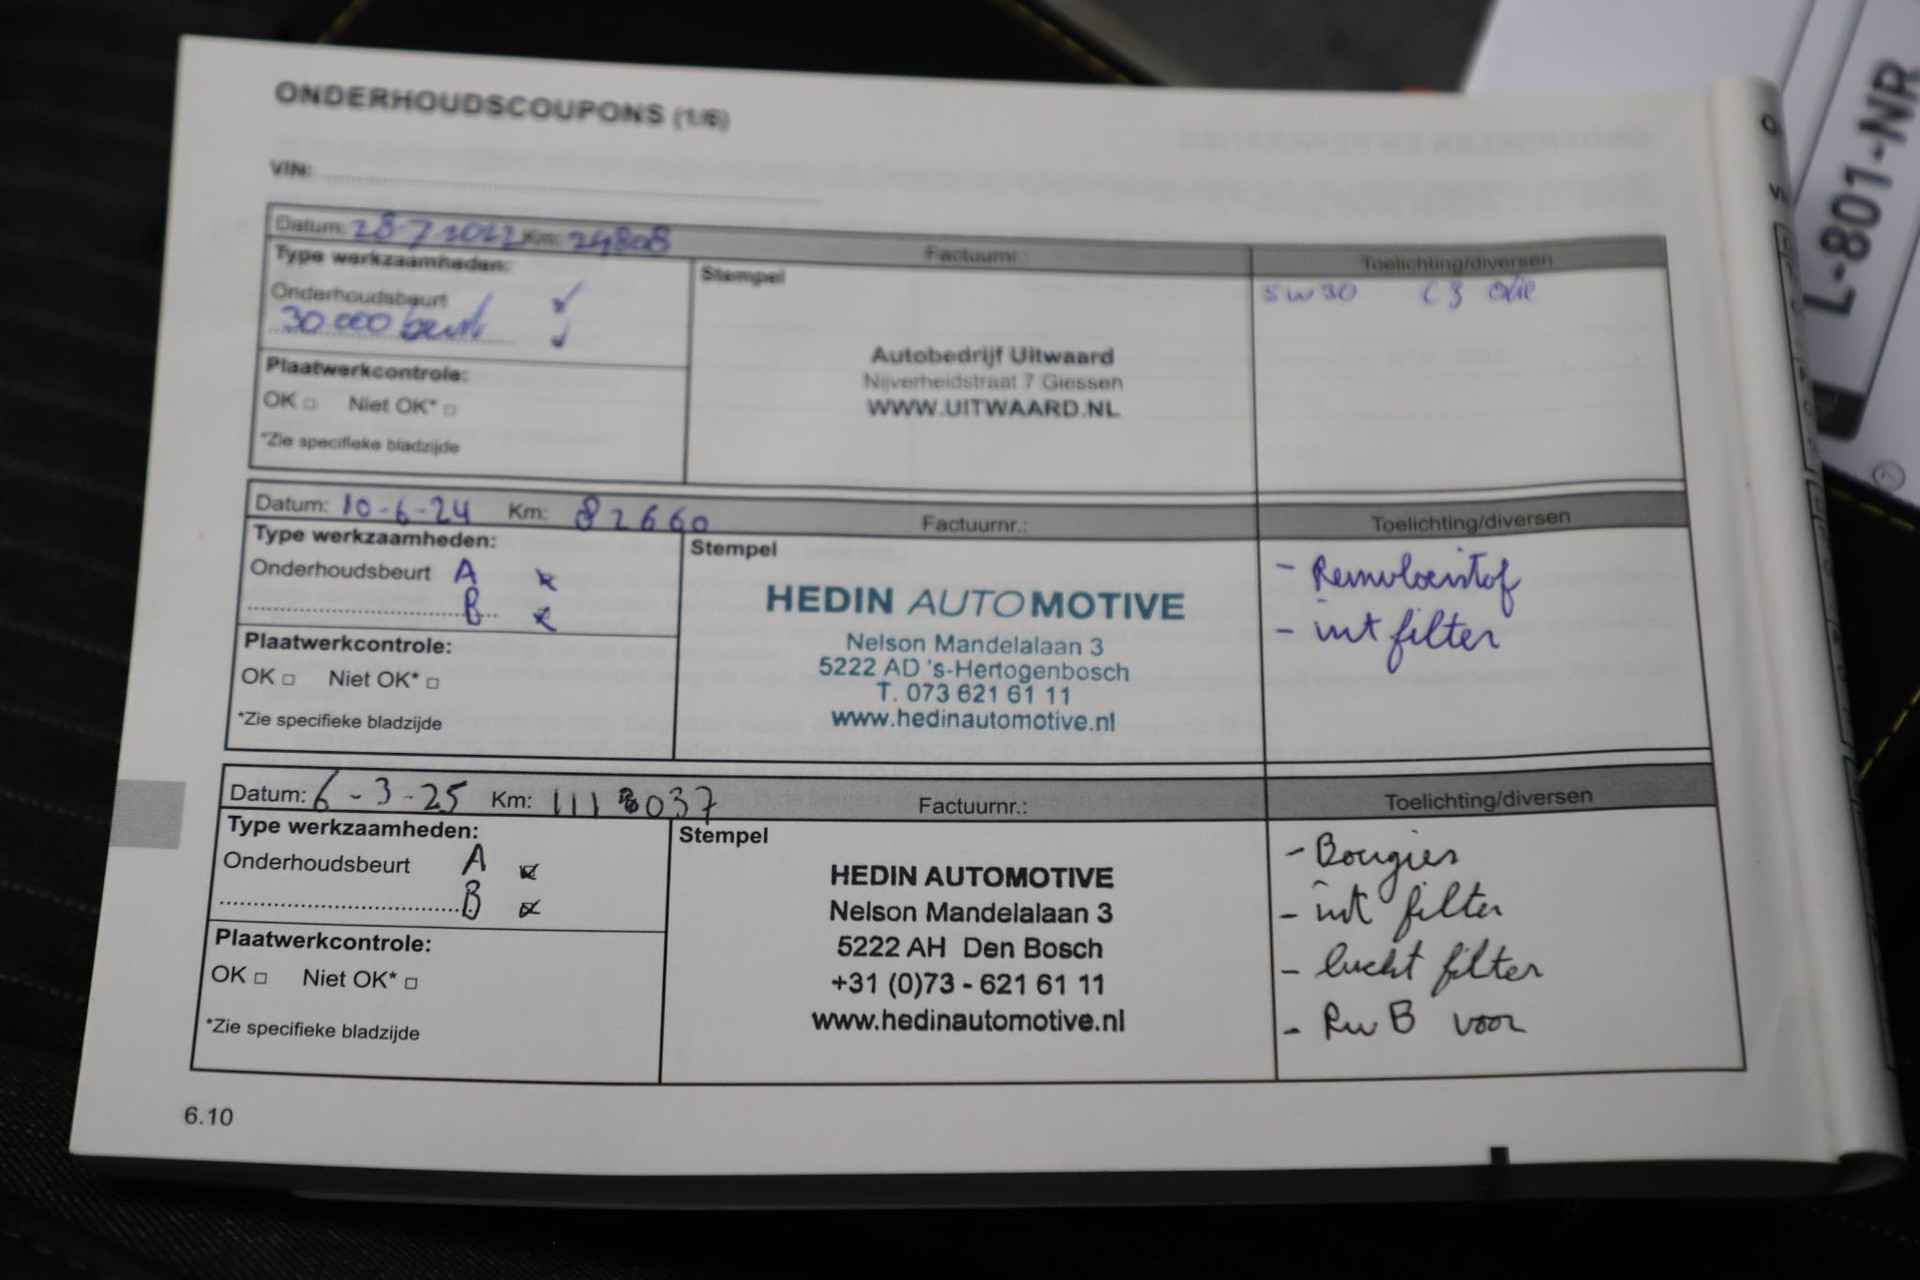 ONDERHOUDSCOUPONS (1/6)
VIN:
Datum: 28-7 2022 Km: 24808 Factuurnr.: Toelichting/diversen
Type werkzaamheden:
Onderhoudsbeurt
30.000 beurt
Plaatwerkcontrole:
OK □ Niet OK* □
*Zie specifieke bladzijde
Stempel
Autobedrijf Uitwaard
Nijverheidstraat 7 Giessen
WWW.UITWAARD.NL
5W30 C3 olie
Datum: 10-6-24 Km: 82660 Factuurnr.: Toelichting/diversen
Type werkzaamheden:
Onderhoudsbeurt A
B
Plaatwerkcontrole:
OK □ Niet OK* □
*Zie specifieke bladzijde
Stempel
HEDIN AUTOMOTIVE
Nelson Mandelalaan 3
5222 AD 's-Hertogenbosch
T. 073 621 61 11
www.hedinautomotive.nl
- Remvloeistof
- int filter
Datum: 6-3-25 Km: Factuurnr.: Toelichting/diversen
Type werkzaamheden:
Onderhoudsbeurt A
B
Plaatwerkcontrole:
OK □ Niet OK* □
*Zie specifieke bladzijde
Stempel
HEDIN AUTOMOTIVE
Nelson Mandelalaan 3
5222 AH Den Bosch
+31 (0)73 - 621 61 11
www.hedinautomotive.nl
- Bougies
- int filter
- lucht filter
- RuB voor
6.10
L-801-NR